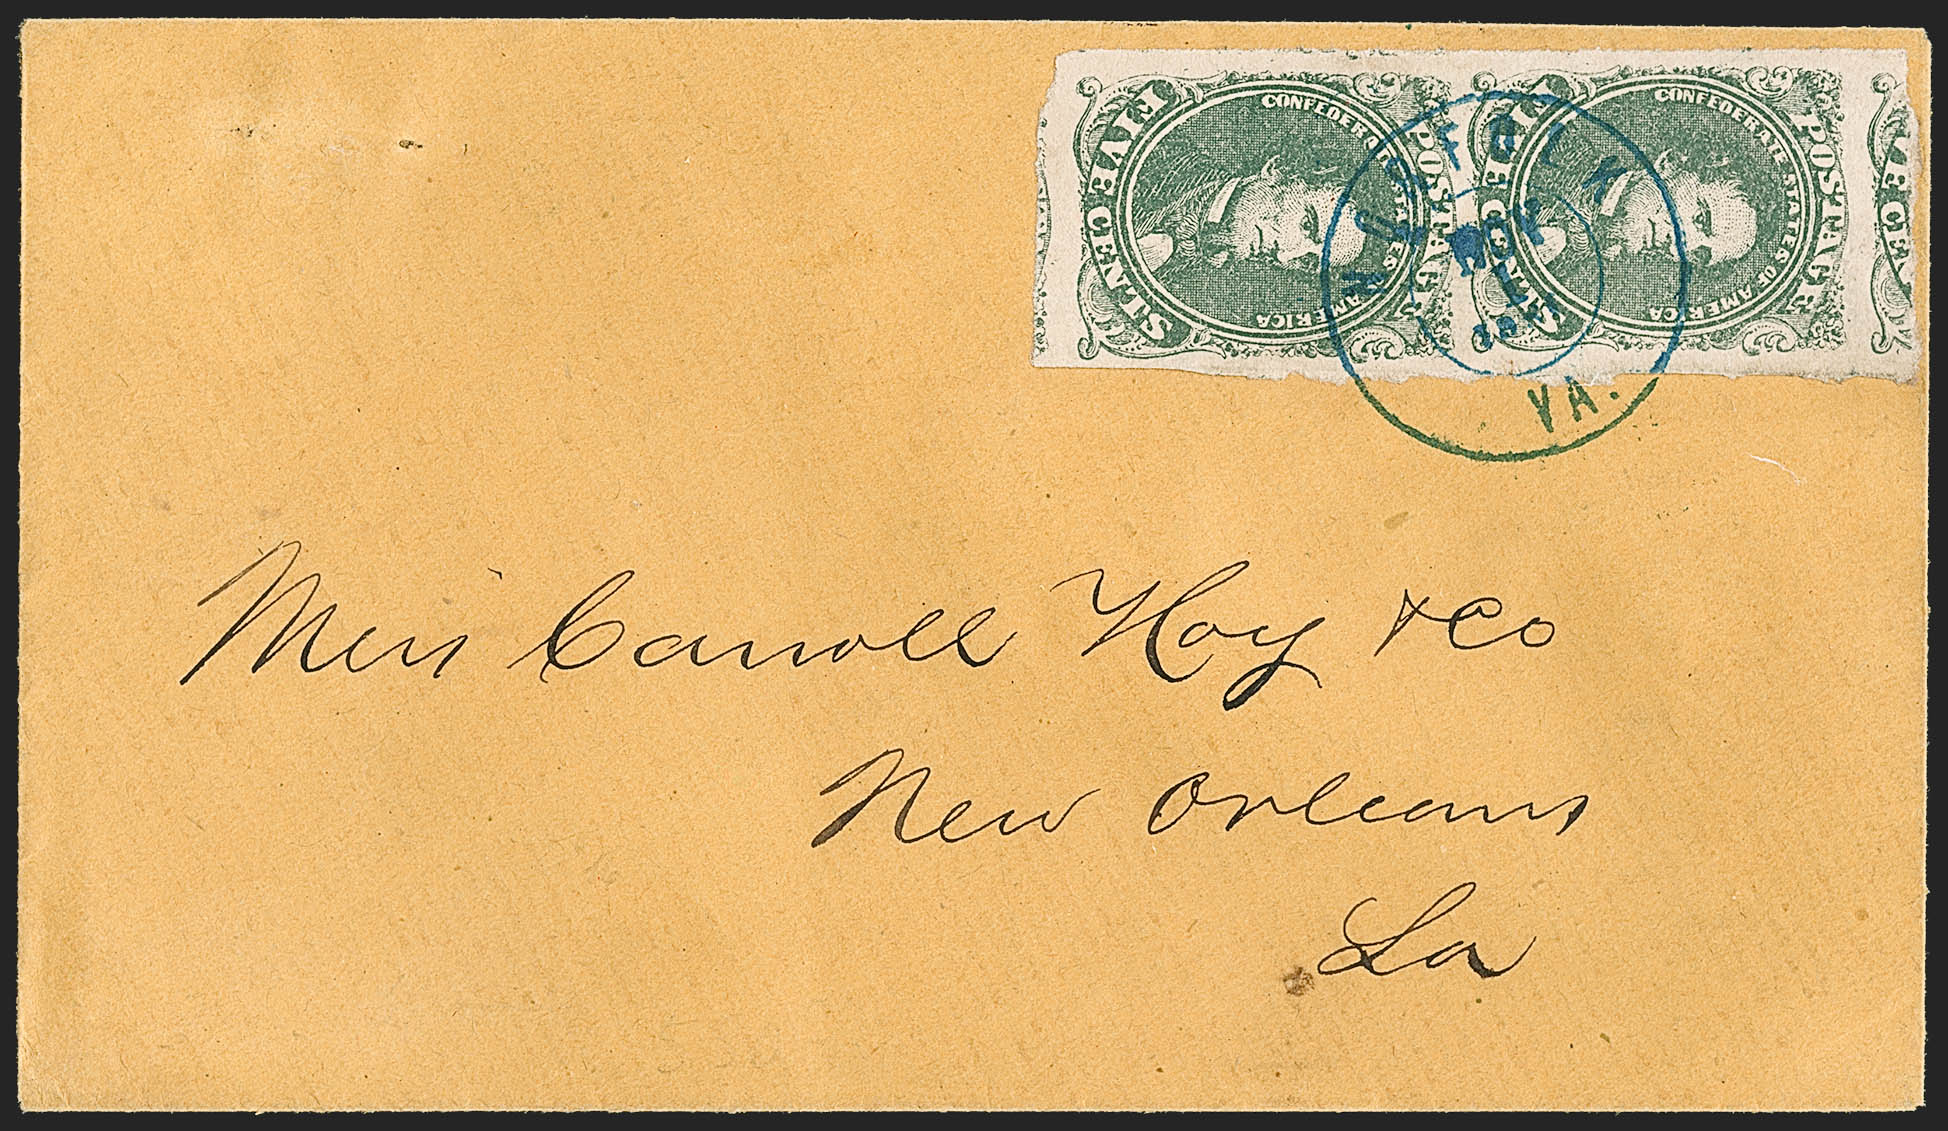 FIVE CENTS
CONFEDERATE STATES OF AMERICA
POSTAGE
FIVE CENTS
CONFEDERATE STATES OF AMERICA
POSTAGE
VE CEN
NORFOLK
NOV
1
1861
VA.
Mess Carroll Hoy & Co
New Orleans
La